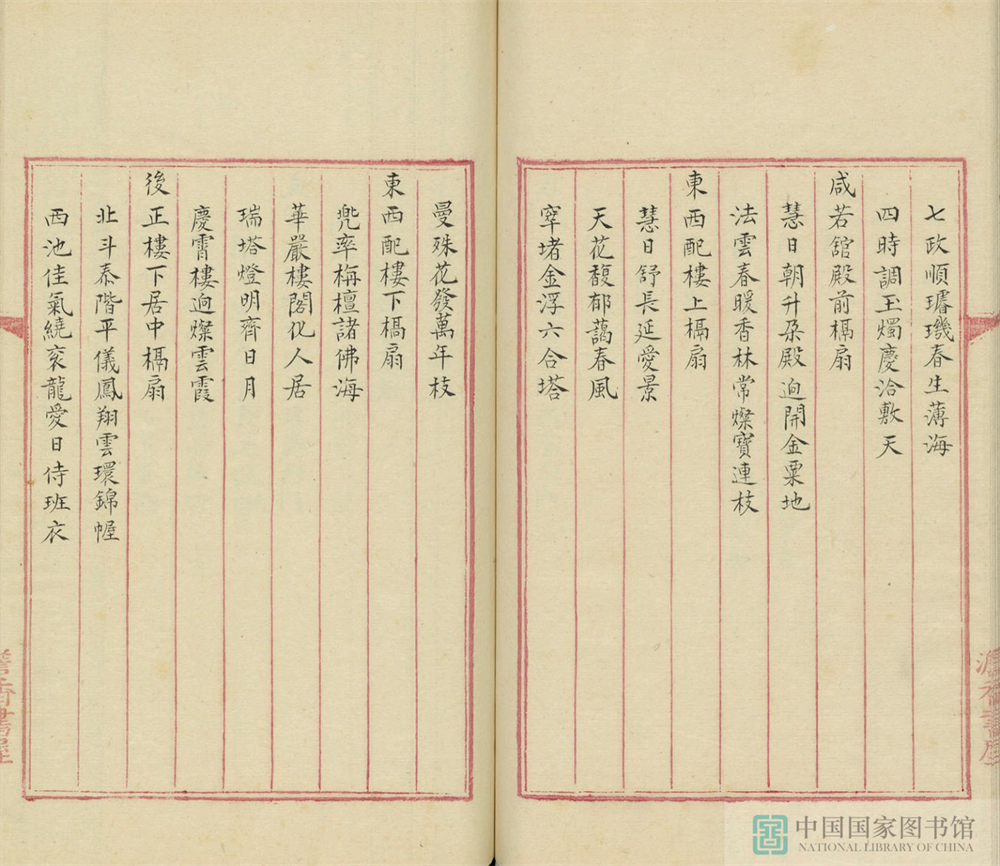 七政順璿璣春生薄海
四時調玉燭慶洽敷天
咸若舘殿前槅扇
慧日朝升朶殿迥開金粟地
法雲春暖香林常燦寳連枝
東西配樓上槅扇
慧日舒長延愛景
天花馥郁藹春風
窣堵金浮六合塔
曼殊花發萬年枝
東西配樓下槅扇
兜率栴檀諸佛海
華嚴樓閣化人居
瑞塔燈明齊日月
慶霄樓迥燦雲霞
後正樓下居中槅扇
北斗泰階平儀鳳翔雲環錦幄
西池佳氣繞衮龍愛日侍班衣
書屋
中国国家图书馆
NATIONAL LIBRARY OF CHINA